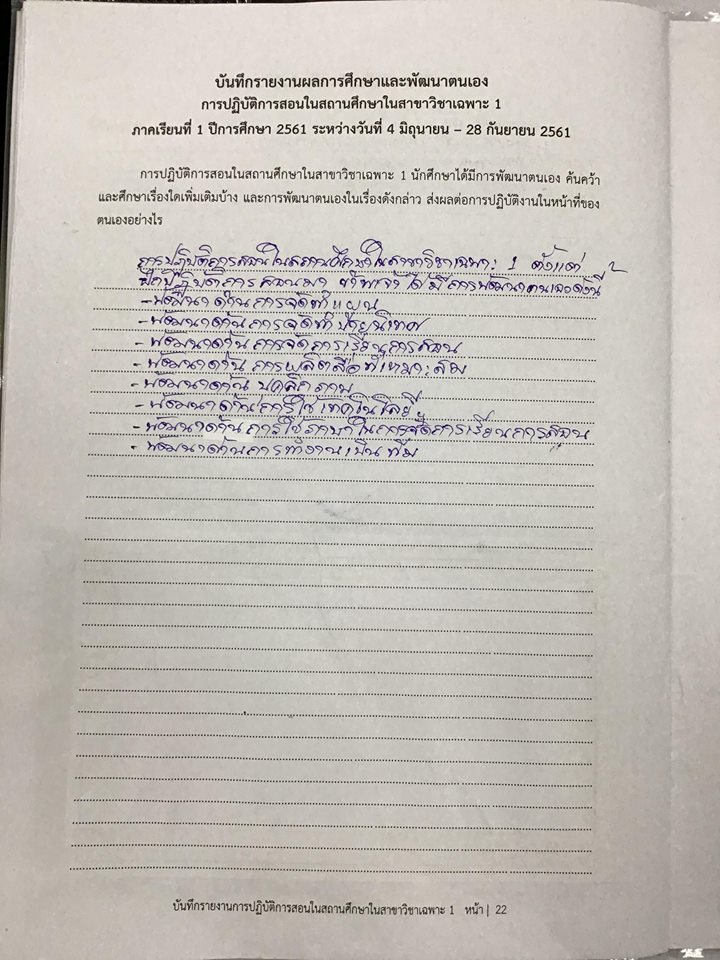 บันทึกรายงานผลการศึกษาและพัฒนาตนเอง
การปฏิบัติการสอนในสถานศึกษาในสาขาวิชาเฉพาะ 1
ภาคเรียนที่ 1 ปีการศึกษา 2561 ระหว่างวันที่ 4 มิถุนายน – 28 กันยายน 2561
การปฏิบัติการสอนในสถานศึกษาในสาขาวิชาเฉพาะ 1 นักศึกษาได้มีการพัฒนาตนเอง ค้นคว้า
และศึกษาเรื่องใดเพิ่มเติมบ้าง และการพัฒนาตนเองในเรื่องดังกล่าว ส่งผลต่อการปฏิบัติงานในหน้าที่ของ
ตนเองอย่างไร
การปฏิบัติการสอนในสถานศึกษาในสาขาวิชาเฉพาะ 1 ตั้งแต่
ฝึกปฏิบัติการสอนมา ข้าพเจ้าได้มีการพัฒนาตนเองดังนี้
- พัฒนาด้านการจัดทำแผน
- พัฒนาด้านการจัดทำป้ายนิเทศ
- พัฒนาด้านการจัดการเรียนการสอน
- พัฒนาด้านการผลิตสื่อที่เหมาะสม
- พัฒนาด้านบุคลิกภาพ
- พัฒนาด้านการใช้เทคโนโลยี
- พัฒนาด้านการใช้ภาษาในการจัดการเรียนการสอน
- พัฒนาด้านการทำงานเป็นทีม
บันทึกรายงานการปฏิบัติการสอนในสถานศึกษาในสาขาวิชาเฉพาะ 1 หน้า | 22